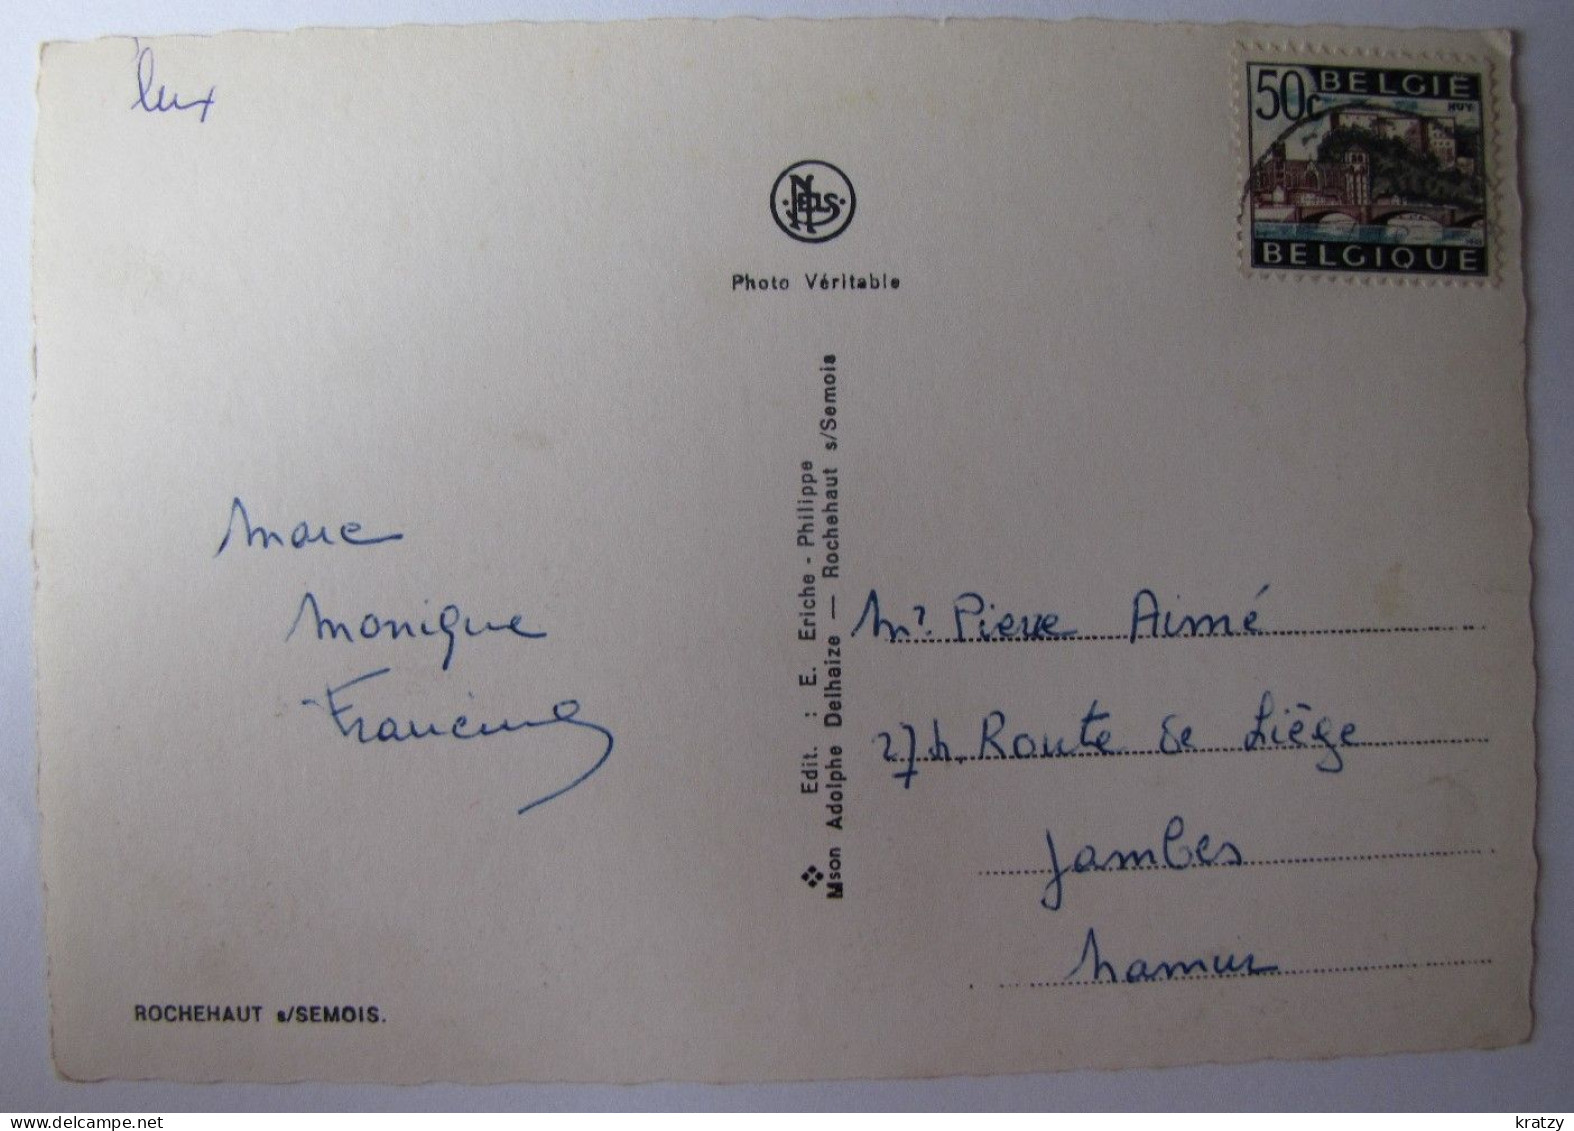 lux
50c BELGIË
HUY
BELGIQUE
NELS
Photo Véritable
Edit. : E. Eriche - Philippe
Mson Adolphe Delhaize — Rochehaut s/Semois
Marc
Monique
Francine
Mr. Pierre Aimé
274, Route de Liège
Jambes
Namur
ROCHEHAUT s/SEMOIS.
www.delcampe.net
kratzy